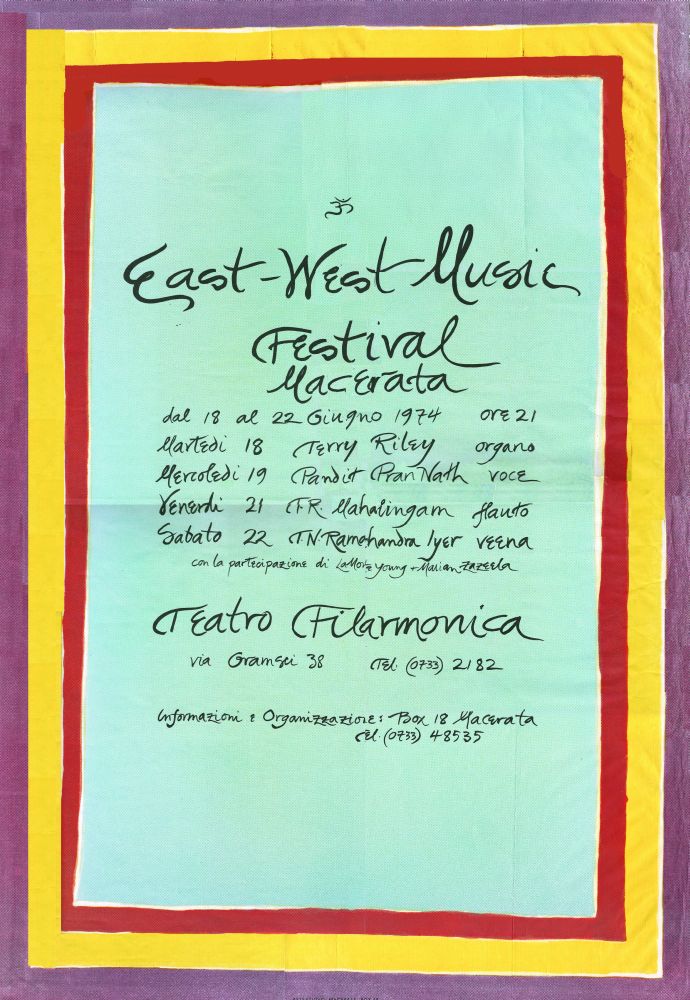 ॐ
East-West Music
Festival
Macerata
dal 18 al 22 Giugno 1974 ore 21
Martedi 18 Terry Riley organo
Mercoledi 19 Pandit Pran Nath voce
Venerdi 21 T.R. Mahalingam flauto
Sabato 22 T.N. Ramchandra Iyer veena
con la partecipazione di LaMonte Young + Marian Zazeela
Teatro Filarmonica
via Gramsci 38 Tel. (0733) 2182
Informazioni e Organizzazione: Box 18 Macerata
Tel. (0733) 48535